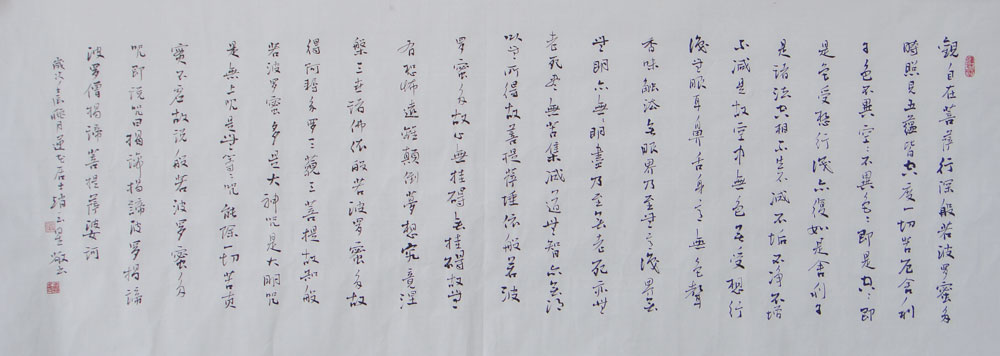 觀自在菩薩行深般若波罗蜜多
時照見五蘊皆空度一切苦厄舍利
子色不異空〻不異色〻即是空〻即
是色受想行識亦復如是舍利子
是诸法空相不生不滅不垢不净不增
不減是故空中無色无受想行
識无眼耳鼻舌身意無色聲
香味觸法无眼界乃至无意識界无
无明亦无明盡乃至无老死亦无
老死盡無苦集滅道无智亦无得
以无所得故菩提薩埵依般若波
罗蜜多故心無挂碍无挂碍故无
有恐怖遠離顛倒夢想究竟涅
槃三世諸佛依般若波罗蜜多故
得阿耨多罗三藐三菩提故知般
若波罗蜜多是大神咒是大明咒
是無上咒是无等〻咒能除一切苦真
實不虛故说般若波罗蜜多
咒即说咒曰揭諦揭諦波罗揭諦
波罗僧揭諦菩提薩婆訶
歲次 月蓮 居士